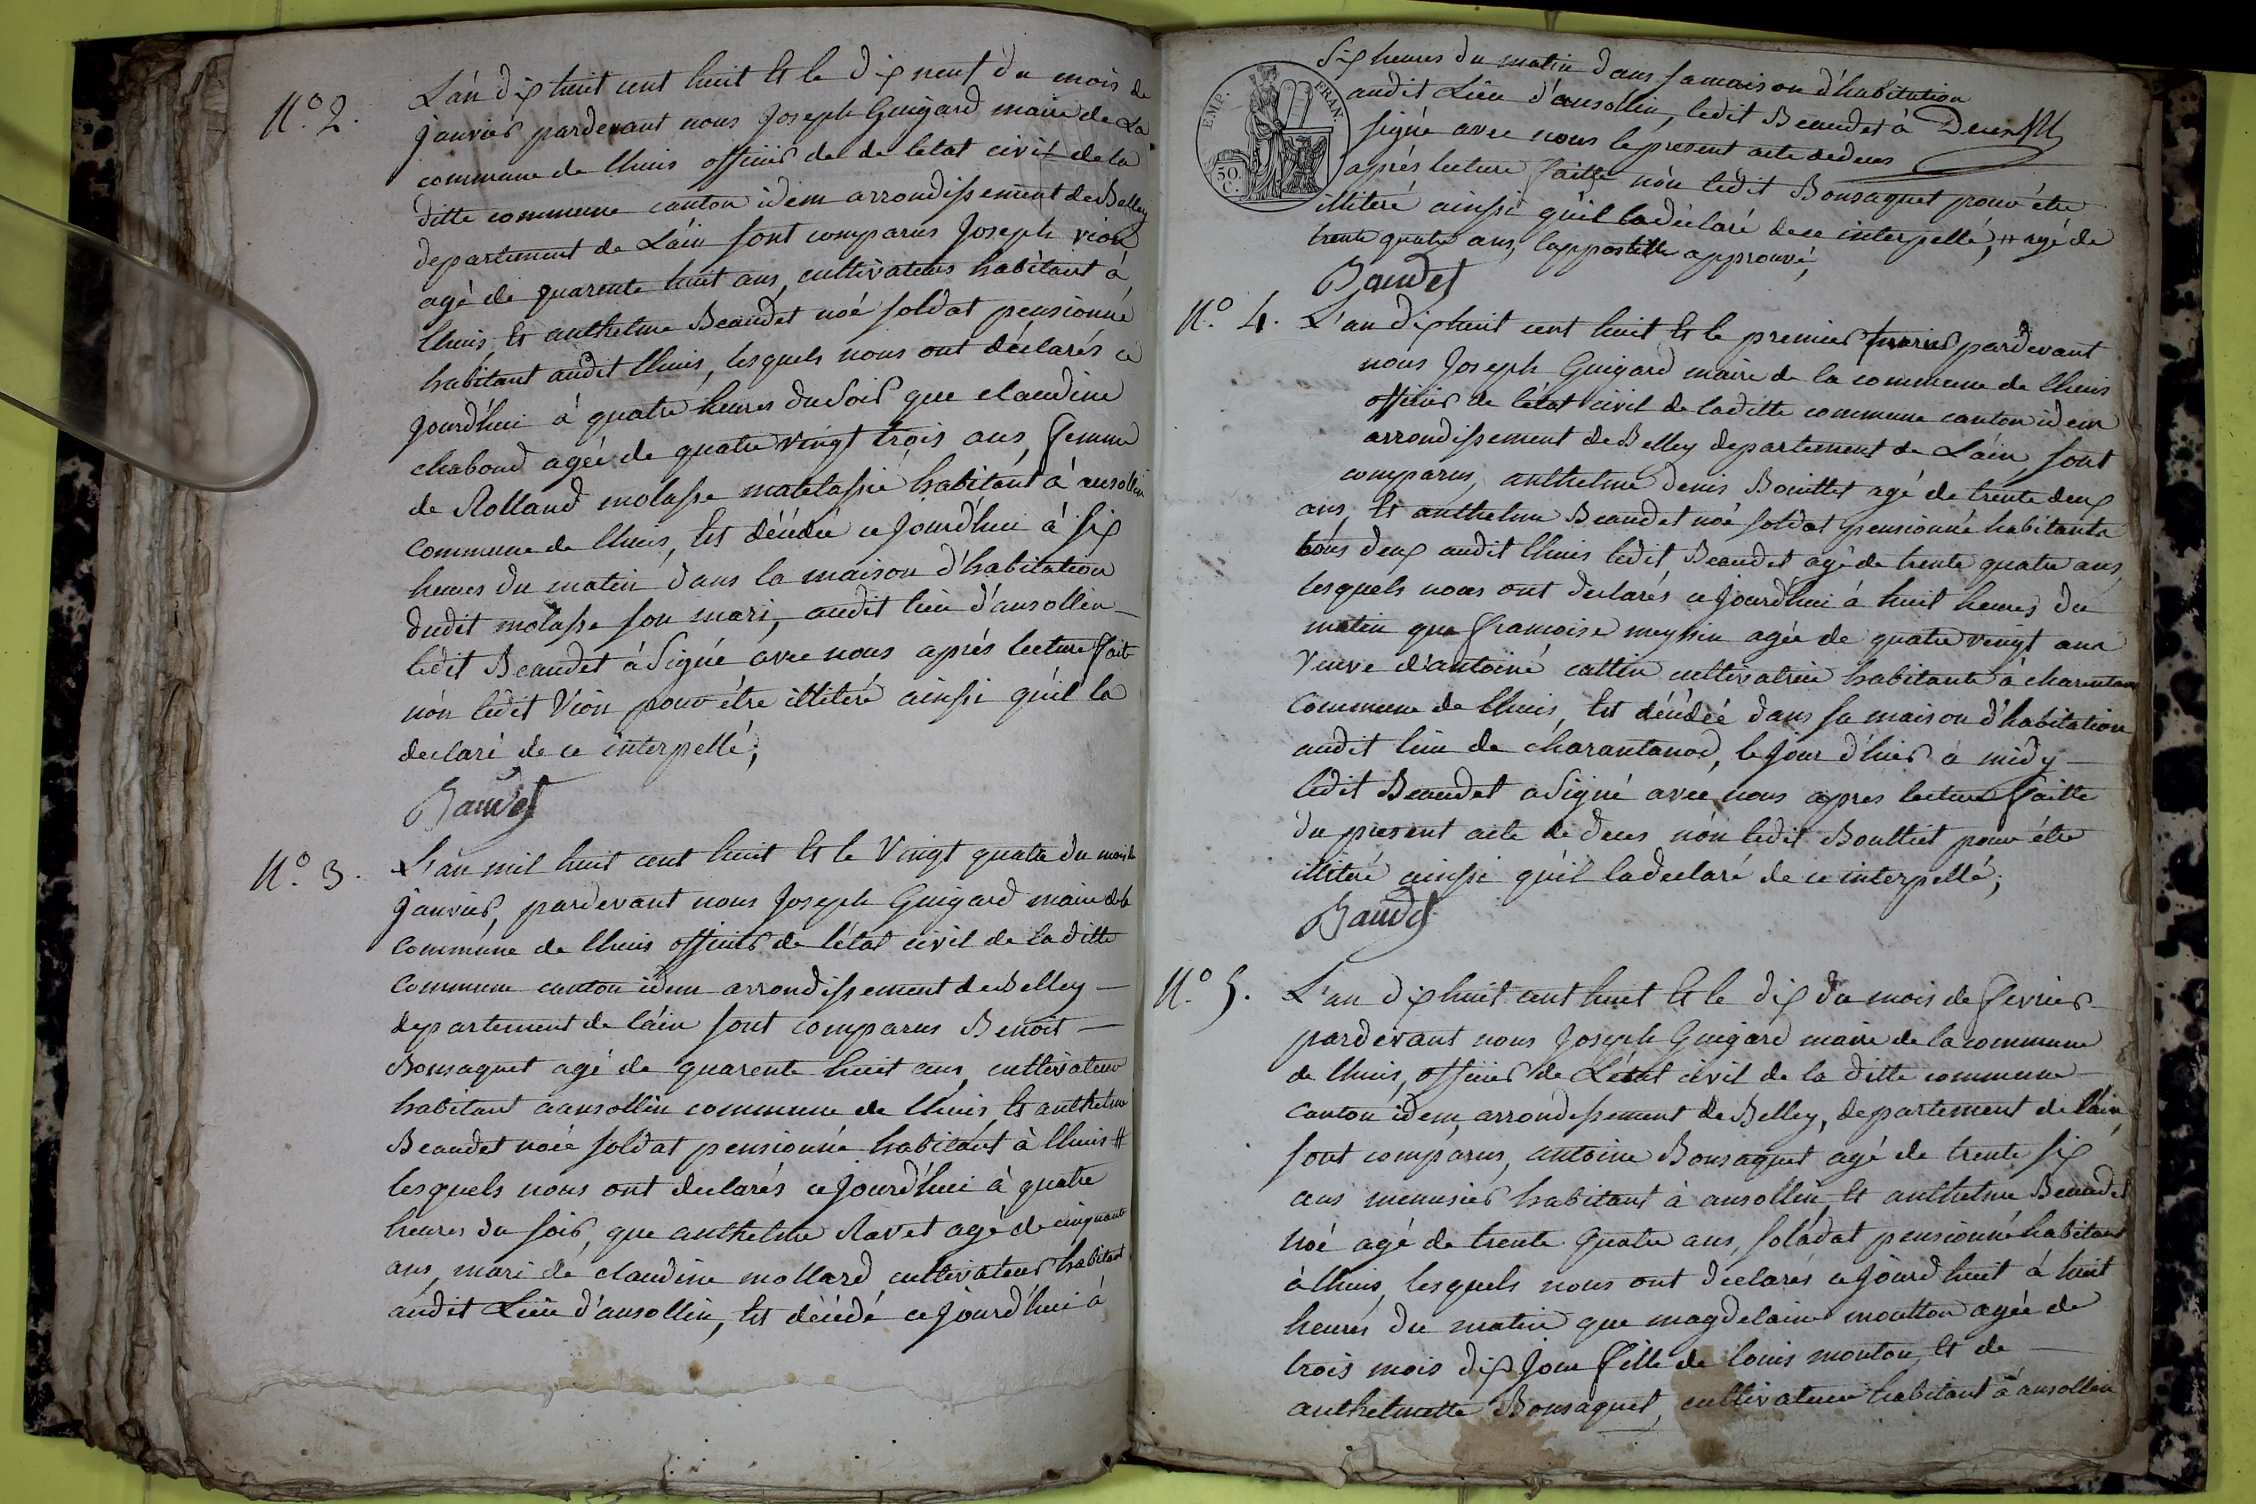 N.° 2.
L'an dix huit cent huit Et le dix neuf du mois de
janvier pardevant nous Joseph Guigard maire de La
commune de lhuis officier de de letat civil de la
ditte commune canton idem arrondissement de Belley
departement de L'áin sont comparus Joseph vion
agé de quarente huit ans, cultivateur habitant á
lhuis, Et anthelme Beaudet noé soldat pensionné
habitant audit lhuis, lesquels nous ont déclarés ce
jourd'hui á quatre heures du soir que claudine
chaboud agée de quatre vingt trois ans, femme
de Rolland molasse matelassié habitant á ansollin
commune de lhuis, Est décédée ce jourd'hui á six
heures du matin dans la maison d'habitation
dudit molasse son mari, audit lieu d'ansollin
ledit Beaudet á signé avec nous aprés lecture faite
nón ledit Vion pour étre illiteré ainsi qu'il la
declaré de ce interpellé;
Baudet
N.° 3.
L'an mil huit cent huit Et le Vingt quatre du mois de
janvier, pardevant nous Joseph Guigard maire de la
commune de lhuis officier de l'état civil de la ditte
commune canton idem arrondissement de Belley
departement de láin sont comparus Benoit
Bonsaquet agé de quarente huit ans, cultivateur
habitant a ansollin commune de lhuis Et anthelme
Beaudet noée soldat pensionné habitant à lhuis #
lesquels nous ont declarés ce jourd'hui à quatre
heures du soir, que anthelme Ravet agé de cinquante
ans, mari de claudine mollard cultivateur habitant
audit Lieu d'ansollin, Est décédé ce jourd'hui á
EMP. FRAN.
50. C.
Six heures du matin dans sa maison d'habitation
audit Lieu d'ansollin, ledit Beaudet à
signé avec nous le present acte de deces
aprés lecture faitte nón ledit Bonsaquet pour étre
illiteré ainsi qu'il la declaré de ce interpellé, # agé de
trente quatre ans, l'appostille approuvé,
Baudet
N.° 4.
L'an dix huit cent huit Et le premier fevrier pardevant
nous Joseph Guigard maire de la commune de lhuis
officier de l'état civil de laditte commune canton idem
arrondissement de Belley departement de L'áin, sont
comparus, anthelme denis Bouillet agé de trente deux
ans, Et anthelme Beaudet noé soldat pensionné habitants
tous deux audit lhuis ledit Beaudet agé de trente quatre ans,
lesquels nous ont declarés ce jourd'hui á huit heures du
matin que francoise meyssin agée de quatre vingt ans
Veuve d'antoine cattin cultivatrice habitante à
commune de lhuis, Est décédée dans sa maison d'habitation
audit lieu de charantanod, le jour d'hier a midy
ledit Beaudet a signé avec nous apres lecture faitte
du present acte de deces nón ledit Bouttiet pour étre
illiteré ainsi qu'il la declaré de ce interpellé;
Baudet
N.° 5.
L'an dix huit cent huit Et le dix du mois de fevrier
pardevant nous Joseph Guigard maire de la commune
de lhuis, officier de L'état civil de la ditte commune
canton idem, arrondissement de Belley, departement de l'áin,
sont comparus, antoine Bonsaquet agé de trente six
ans menusier habitant à ansollin, Et anthelme Beaudet
noé agé de trente quatre ans, soldat pensionné habitant
à lhuis, lesquels nous ont declarés ce jourd'huit á huit
heures du matin que magdelaine moutton agée de
trois mois dix jour fille de louis mouton, Et de
anthelmette Bonsaquet, cultivateur habitant à ansollin